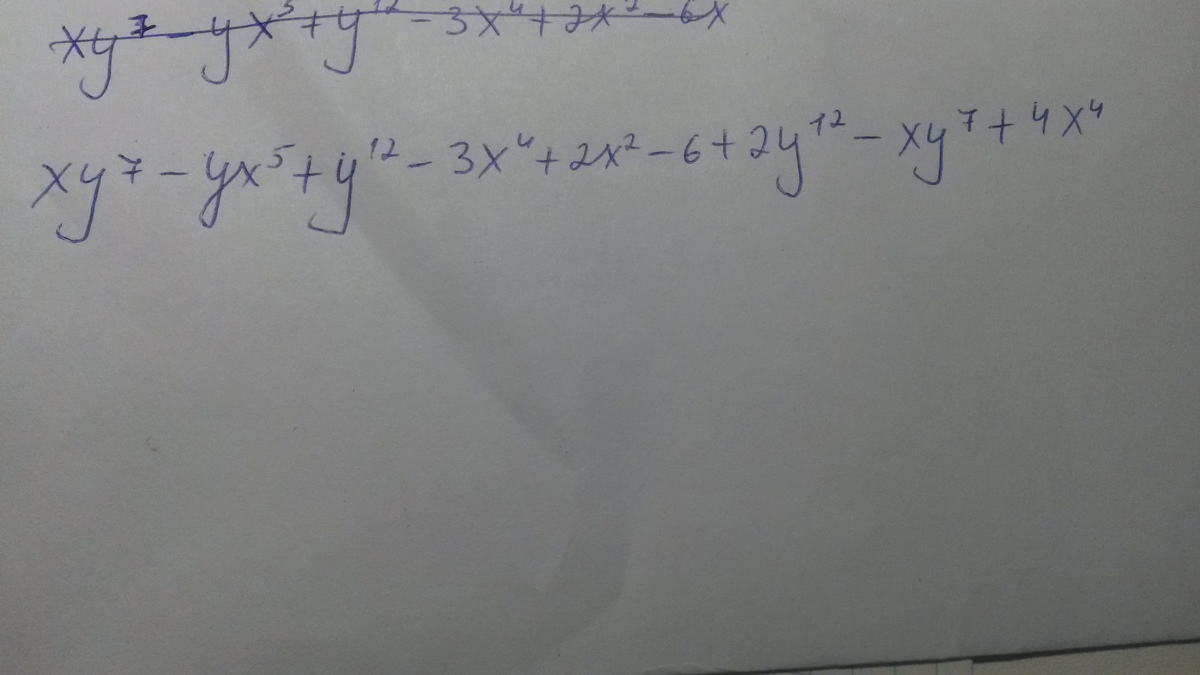 xy⁷ - yx⁵ + y¹² - 3x⁴ + 2x² - 6x
xy⁷ - yx⁵ + y¹² - 3x⁴ + 2x² - 6 + 2y¹² - xy⁷ + 4x⁴